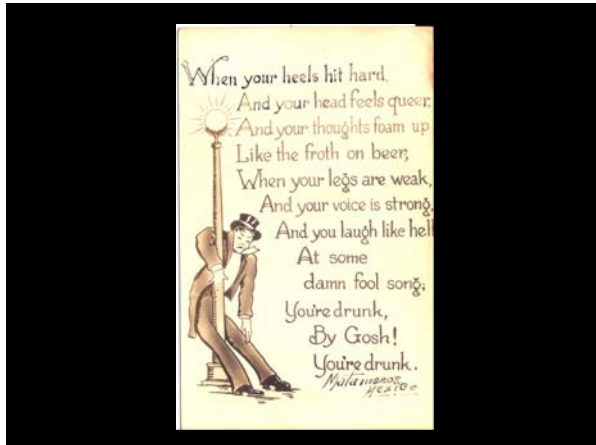 When your heels hit hard,
And your head feels queer,
And your thoughts foam up
Like the froth on beer,
When your legs are weak,
And your voice is strong,
And you laugh like hell
At some
damn fool song,
You're drunk,
By Gosh!
You're drunk.
Matamoros
Mexico